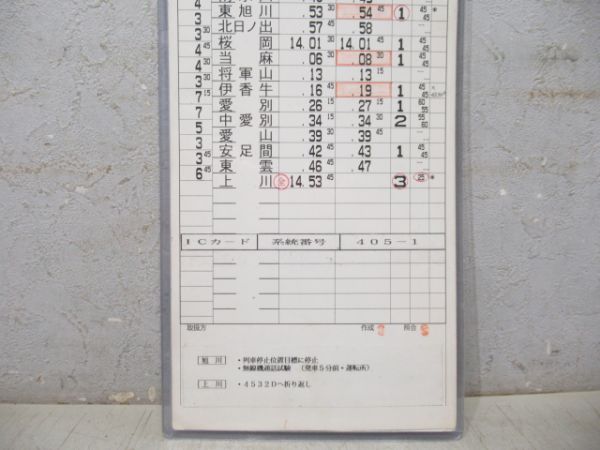 3 東旭川 .53 30 .54 45 1 45 45 *
北日ノ出 .57 45 .58
3 30 桜岡 14.01 30 14.01 45 1 45 45
4 当麻 .06 30 .08 30 1 45 45
4 30 将軍山 .13 .13 15
3 伊香牛 .16 45 .19 1 45 45
7 15 愛別 .26 15 .27 15 1 60 55
7 中愛別 .34 15 .34 30 2 55 60
5 愛山 .39 30 .39 45
3 安足間 .42 45 .43 1 45 45
3 45 東雲 .46 45 .47
6 45 上川 14.53 45 3 25 *
ICカード 系統番号 405-1
取扱方 作成 照合
旭川 ・列車停止位置目標に停止
・無線機通話試験 (発車5分前・運転所)
上川 ・4532Dへ折り返し